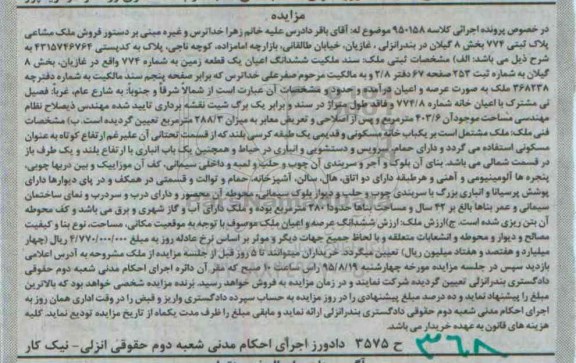 مزایده
در خصوص پرونده اجرائی کلاسه ۹۵۰۱۵۸ موضوع له: آقای باقر دادرس علیه خانم زهرا خداترس و غیره مبنی بر دستور فروش ملک مشاعی
پلاک ثبتی ۷۷۴ بخش ۸ گیلان در بندرانزلی ، غازیان، خیابان طالقانی، بازارچه امامزاده، کوچه ناجی، پلاک به کدپستی ۴۳۱۵۷۴۶۷۶۴ به
شرح ذیل می باشد: الف) مشخصات ثبتی ملک: سند ملکیت ششدانگ اعیان یک قطعه زمین به شماره ۷۷۴ واقع در غازیان، بخش ۸
گیلان به شماره ثبت ۲۵۳ صفحه ۶۷ دفتر ۲/۸ و به مالکیت مرحوم صفرعلی خداترس که برابر صفحه پنجم سند مالکیت به شماره دفترچه
۳۶۸۲۳۸ ملک به صورت عرصه و اعیان درآمده و حدود و مشخصات آن عبارت است از شمالا شرقاً و جنوباً: به شارع عام، غرباً: فصیل
نی مشترک با اعیان خانه شماره ۷۷۴/۸ و فاقد طول متراژ در سند و برابر یک برگ شیت نقشه برداری تایید شده مهندس ذیصلاح نظام
مهندسی مساحت موجودآن ۴۰۳/۶ مترمربع و پس از اصلاحی و تعریض معابر به میزان ۲۸۸/۳ مترمربع تعیین گردیده است. ب) مشخصات
فنی ملک: ملک مشتمل است بر یکباب خانه مسکونی و قدیمی یک طبقه کرسی بلند که از قسمت تحتانی آن علیرغم ارتفاع کوتاه به عنوان
مسکونی استفاده می گردد و دارای حمام، سرویس و دستشویی و انباری در حیاط و همچنین یک باب انباری با ارتفاع بلند و یک طرف باز
در قسمت شمالی می باشد. بنای آن بلوک و آجر و سربندی آن چوب و حلب و لمبه و داخلی سیمانی، کف آن موزاییک و بین دربها چوبی-
پنجره ها آلومینیومی و آهنی و هرطبقه دارای دو اتاق، هال، سالن، آشپزخانه، حمام و توالت و قسمتی در همکف و در پای دیوارها دارای
پوشش پرسیانا و انباری بزرگ با سربندی چوب و حلب و دیوار بلوک سیمانی، محوطه آن محصور و دارای درب و سردرب و نمای ساختمان
سیمانی و عمر بناها بالغ بر ۴۲ سال و مساحت بناها حدودا ۳۸۰ مترمربع بوده و ملک دارای آب و گاز شهری و برق می باشد و کف محوطه
آن بتن ریزی شده است. ج)ارزش ملک: ارزش ششدانگ عرصه و اعیان ملک موصوف با توجه به موقعیت مکانی، مساحت، نوع بنا و کیفیت
مصالح و دیوار و محوطه و انشعابات متعلقه و با لحاظ جمیع جهات دیگر و موثر بر اساس نرخ عادله روز به مبلغ ۴/۷۷۰/۰۰۰/۰۰۰ ریال (چهار
میلیارد و هفتصد و هفتاد میلیون ریال) تعیین میگردد. خریداران میتوانند تا ۵ روز قبل از جلسه مزایده از ملک مشروحه به آدرس اعلامی
بازدید سپس در جلسه مزایده مورخه چهارشنبه ۹۵/۸/۱۹ راس ساعت ۱۰ صبح که مقر آن دائره اجرای احکام مدنی شعبه دوم حقوقی
دادگستری بندرانزلی تعیین گردیده شرکت نمایند و در زمان مزایده به فروش خواهد رسید. برنده مزایده شخصی خواهد بود که بالاترین
مبلغ را پیشنهاد نماید و ده درصد مبلغ پیشنهادی را در روز مزایده به حساب سپرده دادگستری واریز و فیش را در وقت اداری همان روز به
اجرای احکام مدنی شعبه دوم حقوقی دادگستری بندرانزلی ارائه نماید و مابقی مبلغ را ظرف مدت یکماه از تاریخ مزایده تودیع نماید. کلیه
هزینه های قانون به عهده خریدار می باشد.
ح ۳۵۷۵ دادورز اجرای احکام مدنی شعبه دوم حقوقی انزلی- نیک کار
۳۶۸